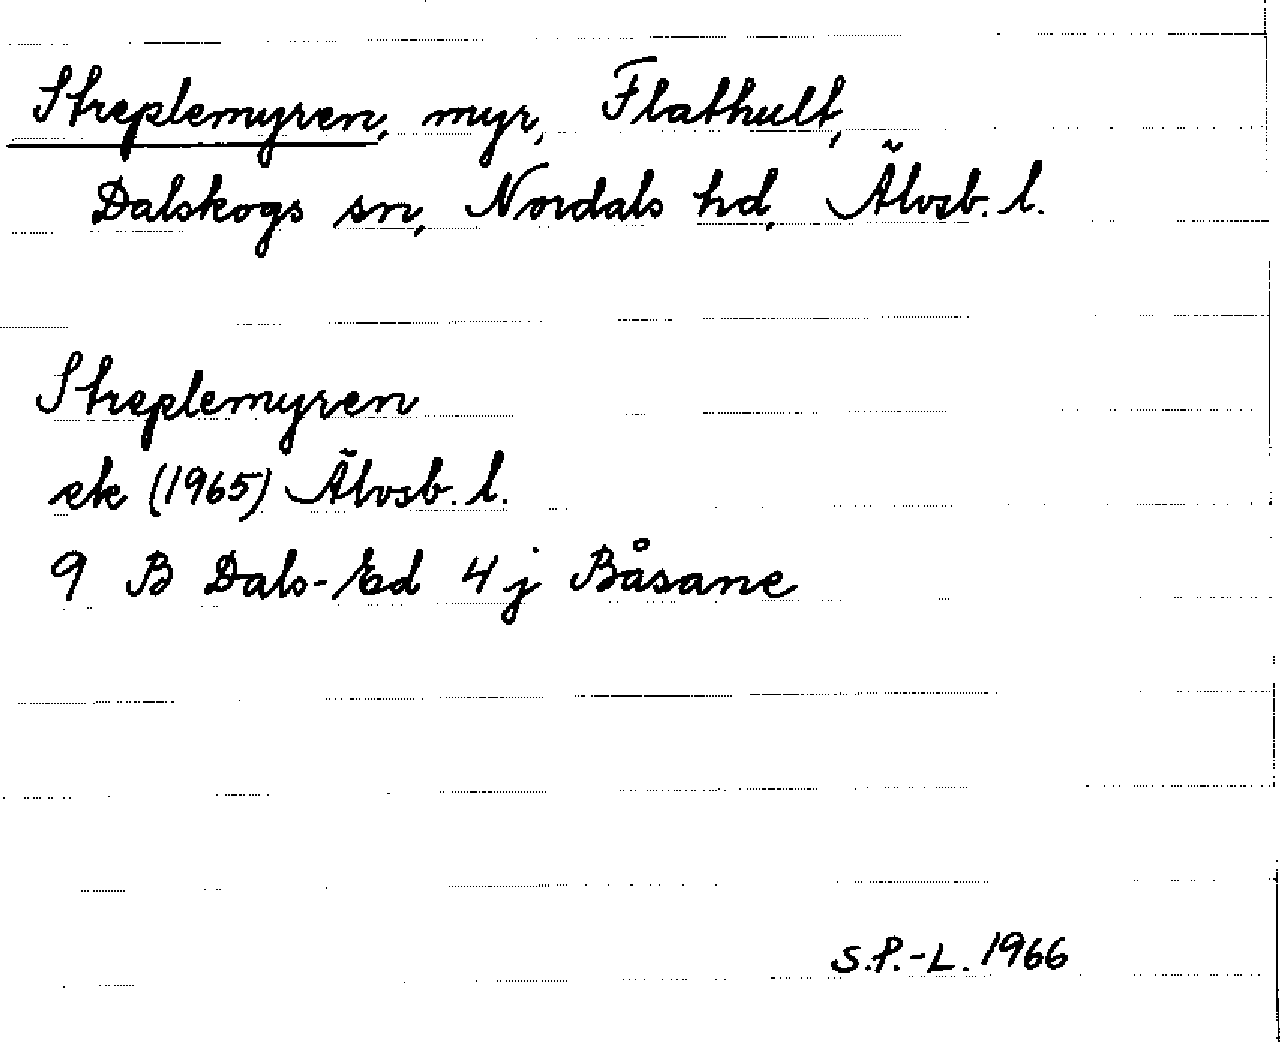 Streplemyren, myr, Flathult,
Dalskogs sn, Nordals hd, Älvsb. l.
Streplemyren
ek (1965) Älvsb. l.
9 B Dals-Ed 4 j Båsane
S.P.-L. 1966